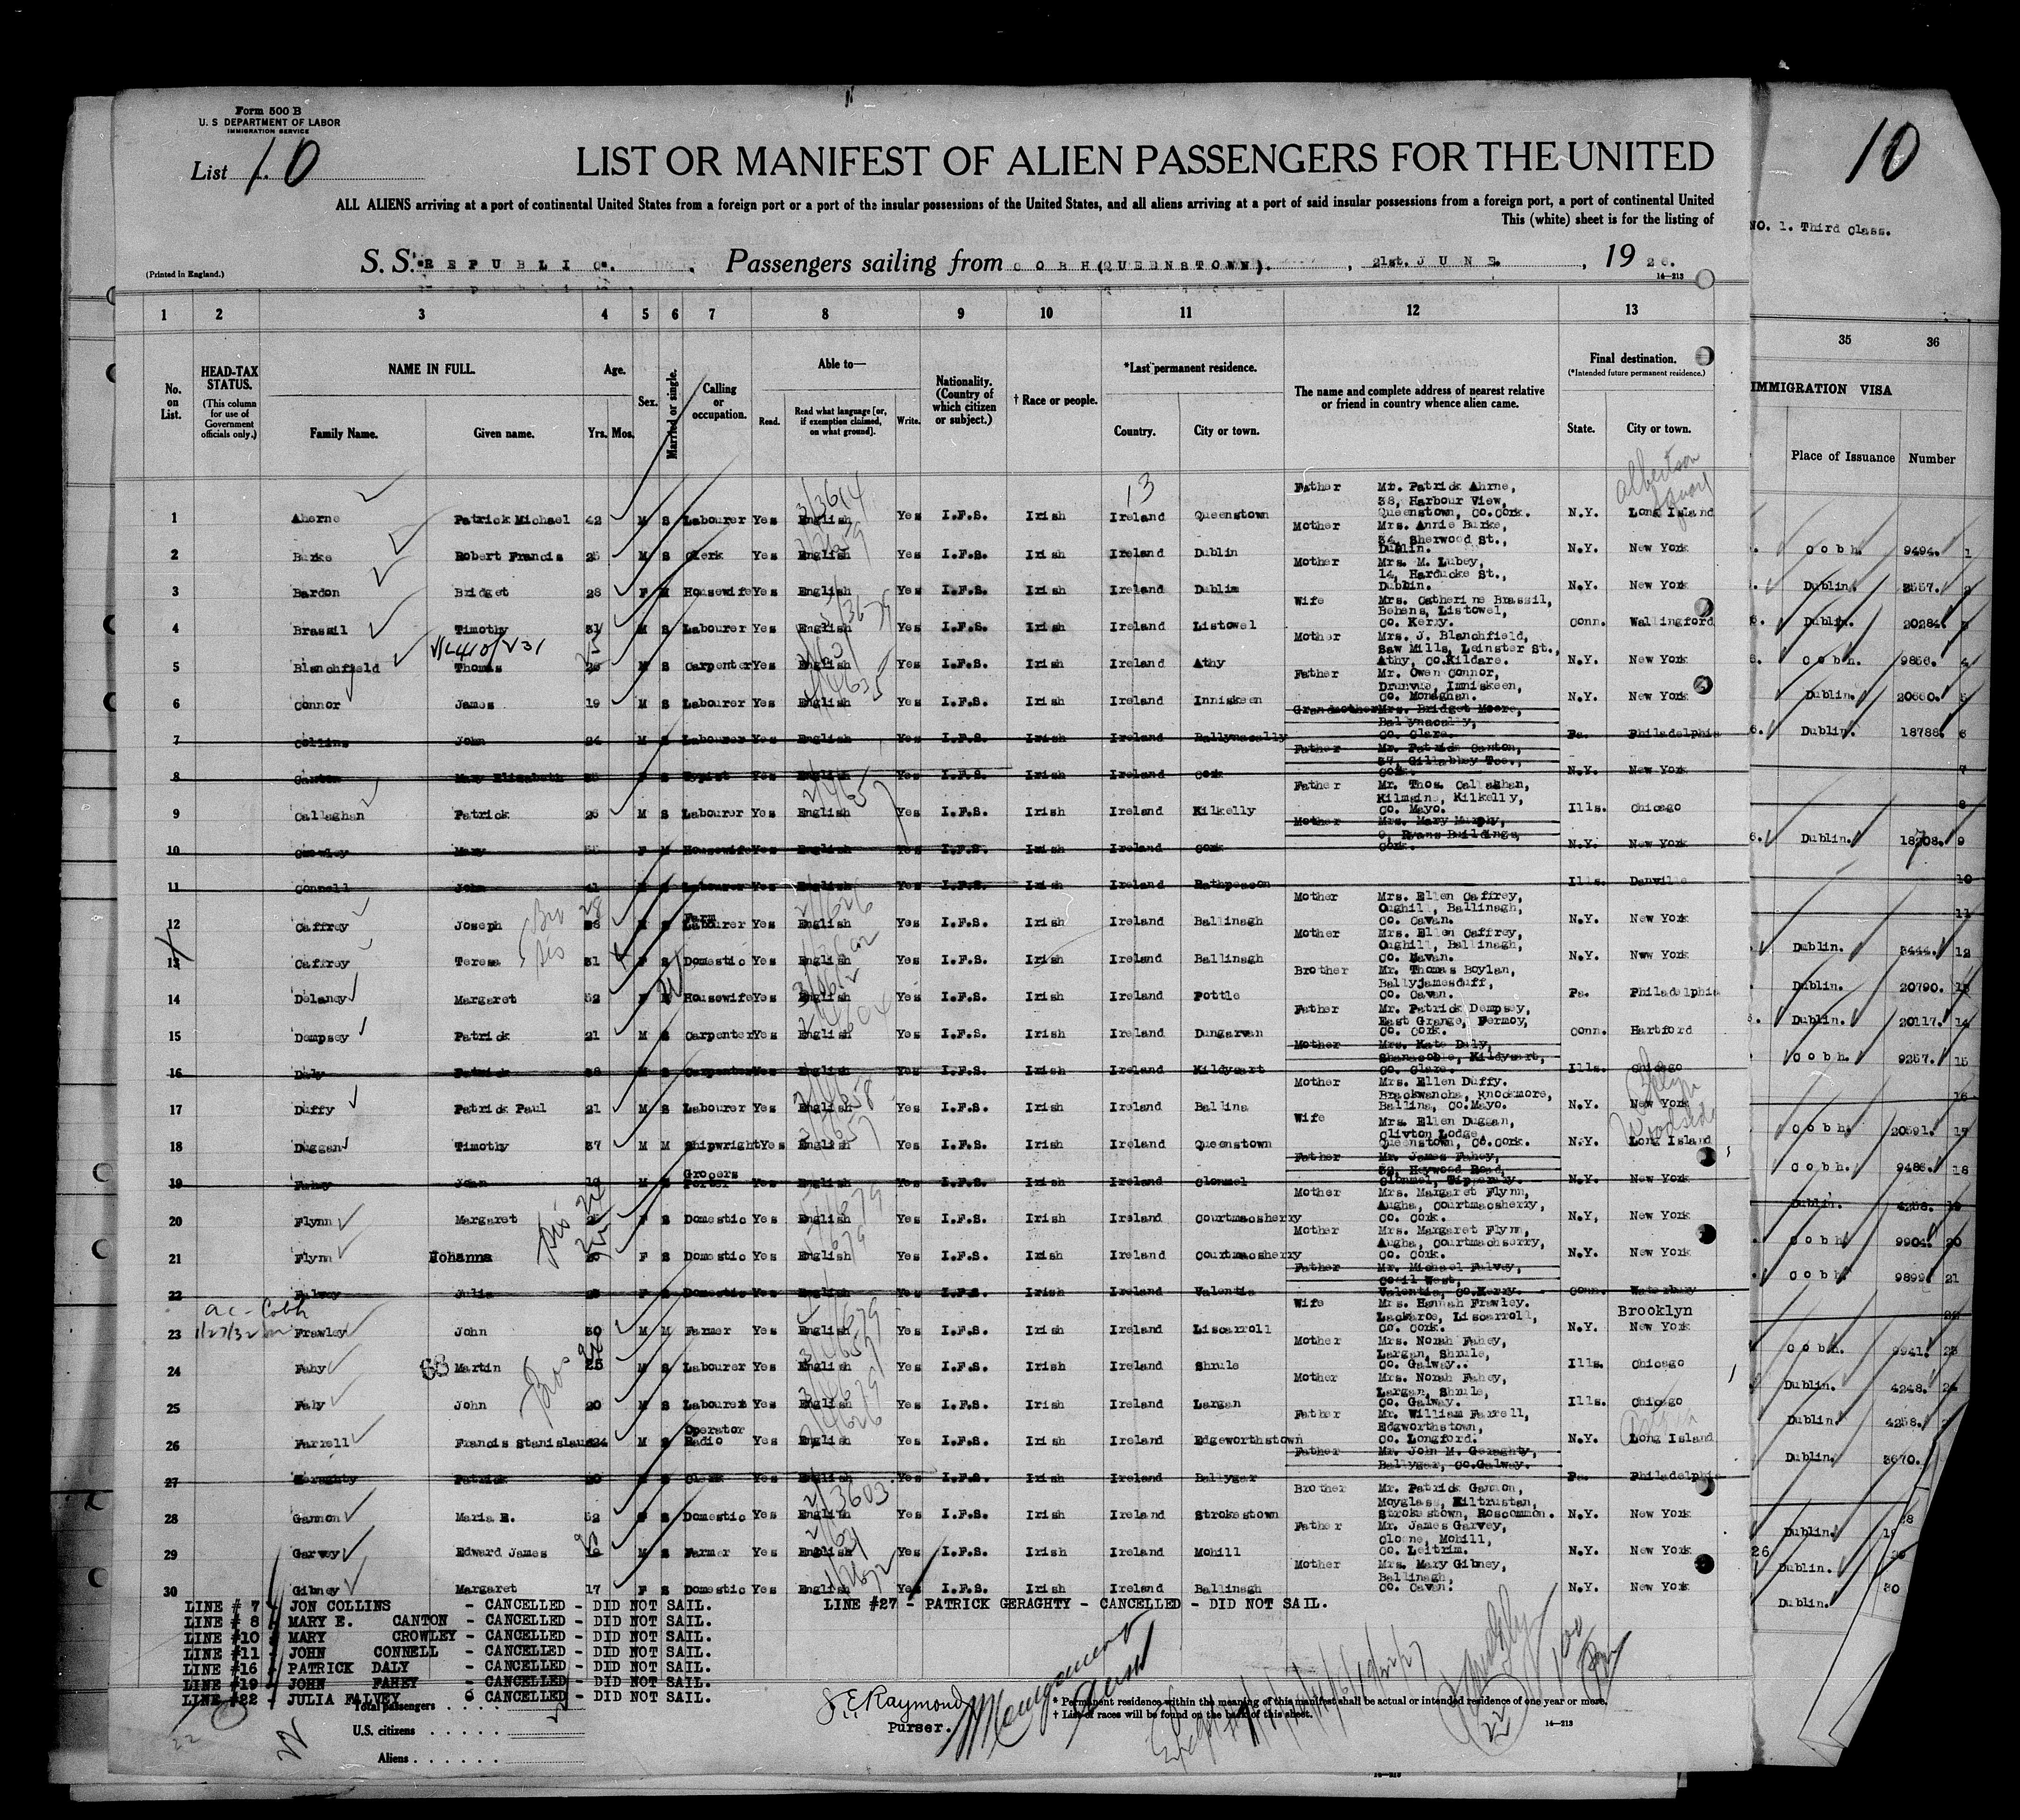 Form 500 B
U. S DEPARTMENT OF LABOR
IMMIGRATION SERVICE
List 10
10
LIST OR MANIFEST OF ALIEN PASSENGERS FOR THE UNITED
ALL ALIENS arriving at a port of continental United States from a foreign port or a port of the insular possessions of the United States, and all aliens arriving at a port of said insular possessions from a foreign port, a port of continental United
This (white) sheet is for the listing of
NO. 1. Third Class.
(Printed in England.)
S. S. REPUBLIC. Passengers sailing from COBH(QUEENSTOWN). , 21st. JUNE. , 19 26.
14—213
1 2 3 4 5 6 7 8 9 10 11 12 13 35 36
No. on List.
HEAD-TAX STATUS.
(This column for use of Government officials only.)
NAME IN FULL.
Family Name. Given name.
Age.
Yrs. Mos.
Sex.
Married or single.
Calling or occupation.
Able to—
Read. Read what language [or, if exemption claimed, on what ground]. Write.
Nationality. (Country of which citizen or subject.)
† Race or people.
*Last permanent residence.
Country. City or town.
The name and complete address of nearest relative or friend in country whence alien came.
Final destination.
(*Intended future permanent residence.)
State. City or town.
IMMIGRATION VISA
Place of Issuance Number
13
Albertson
1 Aherne Patrick Michael 42 M S Labourer Yes English Yes I.F.S. Irish Ireland Queenstown Father Mr. Patrick Ahrne, 38, Harbour View, Queenstown, Co.Cork. N.Y. Long Island Cobh. 9494. 1
2 Burke Robert Francis 25 M S Clerk Yes English Yes I.F.S. Irish Ireland Dublin Mother Mrs. Annie Burke, 34, Sherwood St., Dublin. N.Y. New York Dublin. 3557. 2
3 Bardon Bridget 28 F M Housewife Yes English Yes I.F.S. Irish Ireland Dublin Mother Mrs. M. Lubey, 14, Harducke St., Dublin. N.Y. New York Dublin. 20284. 3
4 Brassil Timothy 31 M S Labourer Yes English Yes I.F.S. Irish Ireland Listowel Wife Mrs. Catherine Brassil, Behens, Listowel, Co. Kerry. Conn. Wallingford Cobh. 9856. 4
5 Blanchfield Thomas M S Carpenter Yes English Yes I.F.S. Irish Ireland Athy Mother Mrs. J. Blanchfield, Saw Mills, Leinster St., Athy, Co.Kildare. N.Y. New York Dublin. 20660. 5
6 Connor James 19 M S Labourer Yes English Yes I.F.S. Irish Ireland Inniskeen Father Mr. Owen Connor, Inniskeen, Co. Monaghan. N.Y. New York Dublin. 18788. 6
7 Collins John 24 M S Labourer Yes English Yes I.F.S. Irish Ireland Ballynacally Grandmother Mrs. Bridget Moore, Ballynacally, Co. Clare. Pa. Philadelphia 7
8 Canton Mary Elizabeth F S Typist Yes English Yes I.F.S. Irish Ireland Cork Father Mr. Patrick Canton, 37, Gillabbey Tce., Cork. N.Y. New York 8
9 Callaghan Patrick 26 M S Labourer Yes English Yes I.F.S. Irish Ireland Kilkelly Father Mr. Thos. Callaghan, Kilmaine, Kilkelly, Co. Mayo. Ills. Chicago Dublin. 9
10 Crowley Mary F M Housewife Yes English Yes I.F.S. Irish Ireland Cork Mother Mrs. Mary Murphy, 9, Ryans Buildings, Cork. N.Y. New York 10
11 Connell John M S Labourer Yes English Yes I.F.S. Irish Ireland Rathpeacon Ills. Danville 11
12 Caffrey Joseph Bro 28 M S Farm Labourer Yes English Yes I.F.S. Irish Ireland Ballinagh Mother Mrs. Ellen Caffrey, Oughill, Ballinagh, Co. Cavan. N.Y. New York Dublin. 3444. 12
13 Caffrey Teresa Sis 31 F S Domestic Yes English Yes I.F.S. Irish Ireland Ballinagh Mother Mrs. Ellen Caffrey, Oughill, Ballinagh, Co. Cavan. N.Y. Nww York Dublin. 20790. 13
14 Delaney Margaret 52 F Housewife Yes English Yes I.F.S. Irish Ireland Pottle Brother Mr. Thomas Boylan, Ballyjamesduff, Co. Cavan. Pa. Philadelphia Dublin. 20117. 14
15 Dempsey Patrick 21 M S Carpenter Yes English Yes I.F.S. Irish Ireland Dungarvan Father Mr. Patrick Dempsey, East Grange, Fermoy, Co. Cork. Conn. Hartford Cobh. 9257. 15
16 Daly Patrick 38 M S Carpenter Yes English Yes I.F.S. Irish Ireland Kildysart Mother Mrs. Kate Daly, Shanacoole, Kildysart, Co. Clare. Ills. Chicago 16
17 Duffy Patrick Paul 21 M S Labourer Yes English Yes I.F.S. Irish Ireland Ballina Mother Mrs. Ellen Duffy. Brackwancha, Knockmore, Ballina, Co.Mayo. N.Y. New York Cobh. 20591. 17
18 Duggan Timothy 37 M M Shipwright Yes English Yes I.F.S. Irish Ireland Queenstown Wife Mrs. Ellen Duggan, Clivton Lodge, Queenstown, Co.Cork. N.Y. Long Island Woodside Cobh. 9486. 18
19 Fahey John 19 M S Grocers Porter Yes English Yes I.F.S. Irish Ireland Clonmel Father Mr. James Fahey, 32, Heywood Road, Clonmel, Tipperary. N.Y. New York Dublin. 4258. 19
20 Flynn Margaret F S Domestic Yes English Yes I.F.S. Irish Ireland Courtmacsherry Mother Mrs. Margaret Flynn, Augha, Courtmacsherry, Co. Cork. N.Y, New York Cobh. 9904. 20
21 Flynn Hohanna F S Domestic Yes English Yes I.F.S. Irish Ireland Courtmacsherry Mother Mrs. Margaret Flynn, Augha, Courtmacsherry, Co. Cork. N.Y. New York Cobh. 9899. 21
22 Falvey Julia F S Domestic Yes English Yes I.F.S. Irish Ireland Valentia Father Mr. Michael Falvey, Coril West, Valentia, Co.Kerry. Conn. Waterbury 22
ac - Cobh
1/27/32
23 Frawley John 30 M M Farmer Yes English Yes I.F.S. Irish Ireland Liscarroll Wife Mrs. Hannah Frawley. Lackaroe, Liscarroll, Co. Cork. N.Y. Brooklyn New York Cobh. 9941. 23
24 Fahy Martin 25 M S Labourer Yes English Yes I.F.S. Irish Ireland Shrule Mother Mrs. Norah Fahey, Largan, Shrule, Co. Galway.. Ills. Chicago Dublin. 4248. 24
25 Fahy John 20 M S Labourer Yes English Yes I.F.S. Irish Ireland Largan Mother Mrs. Norah Fahey, Largan, Shrule, Co. Galway. Ills. Chicago Dublin. 4258.
26 Farrell Francis Stanislaus 24 M S Operator Radio Yes English Yes I.F.S. Irish Ireland Edgeworthstown Father Mr. William Farrell, Edgworthstown, Co. Longford. N.Y. Long Island Dublin. 3670.
27 Geraghty Patrick 20 Clerk Yes English Yes I.F.S. Irish Ireland Ballygar Father Mr. John M. Geraghty, Ballygar, Co.Galway. Pa. Philadelphia
28 Gannon Maria E. 52 S Domestic Yes English Yes I.F.S. Irish Ireland Strokestown Brother Mr. Patrick Gannon, Moyglass, Kiltrustan, Strokestown, Roscommon. N.Y. New York Dublin.
29 Garvey Edward James M S Farmer Yes English Yes I.F.S. Irish Ireland Mohill Father Mr. James Garvey, Cloone, Mohill, Co. Leitrim. N.Y. New York Dublin.
30 Gibney Margaret 17 F S Domestic Yes English Yes I.F.S. Irish Ireland Ballinagh Mother Mrs. Mary Gibney, Ballinagh, Co. Cavan. N.Y. New York Dublin. 30
LINE # 7 - JON COLLINS - CANCELLED - DID NOT SAIL. LINE #27 - PATRICK GERAGHTY - CANCELLED - DID NOT SAIL.
LINE # 8 - MARY E. CANTON - CANCELLED - DID NOT SAIL.
LINE #10 - MARY CROWLEY - CANCELLED - DID NOT SAIL.
LINE #11 - JOHN CONNELL - CANCELLED - DID NOT SAIL.
LINE #16 - PATRICK DALY - CANCELLED - DID NOT SAIL.
LINE #19 - JOHN FAHEY - CANCELLED - DID NOT SAIL.
LINE #22 - JULIA FALVEY CANCELLED - DID NOT SAIL.
Total passengers
U.S. citizens
Aliens
22
S. E. Raymond
Purser.
* Permanent residence within the meaning of this manifest shall be actual or intended residence of one year or more.
† List of races will be found on the back of this sheet.
22
14—213